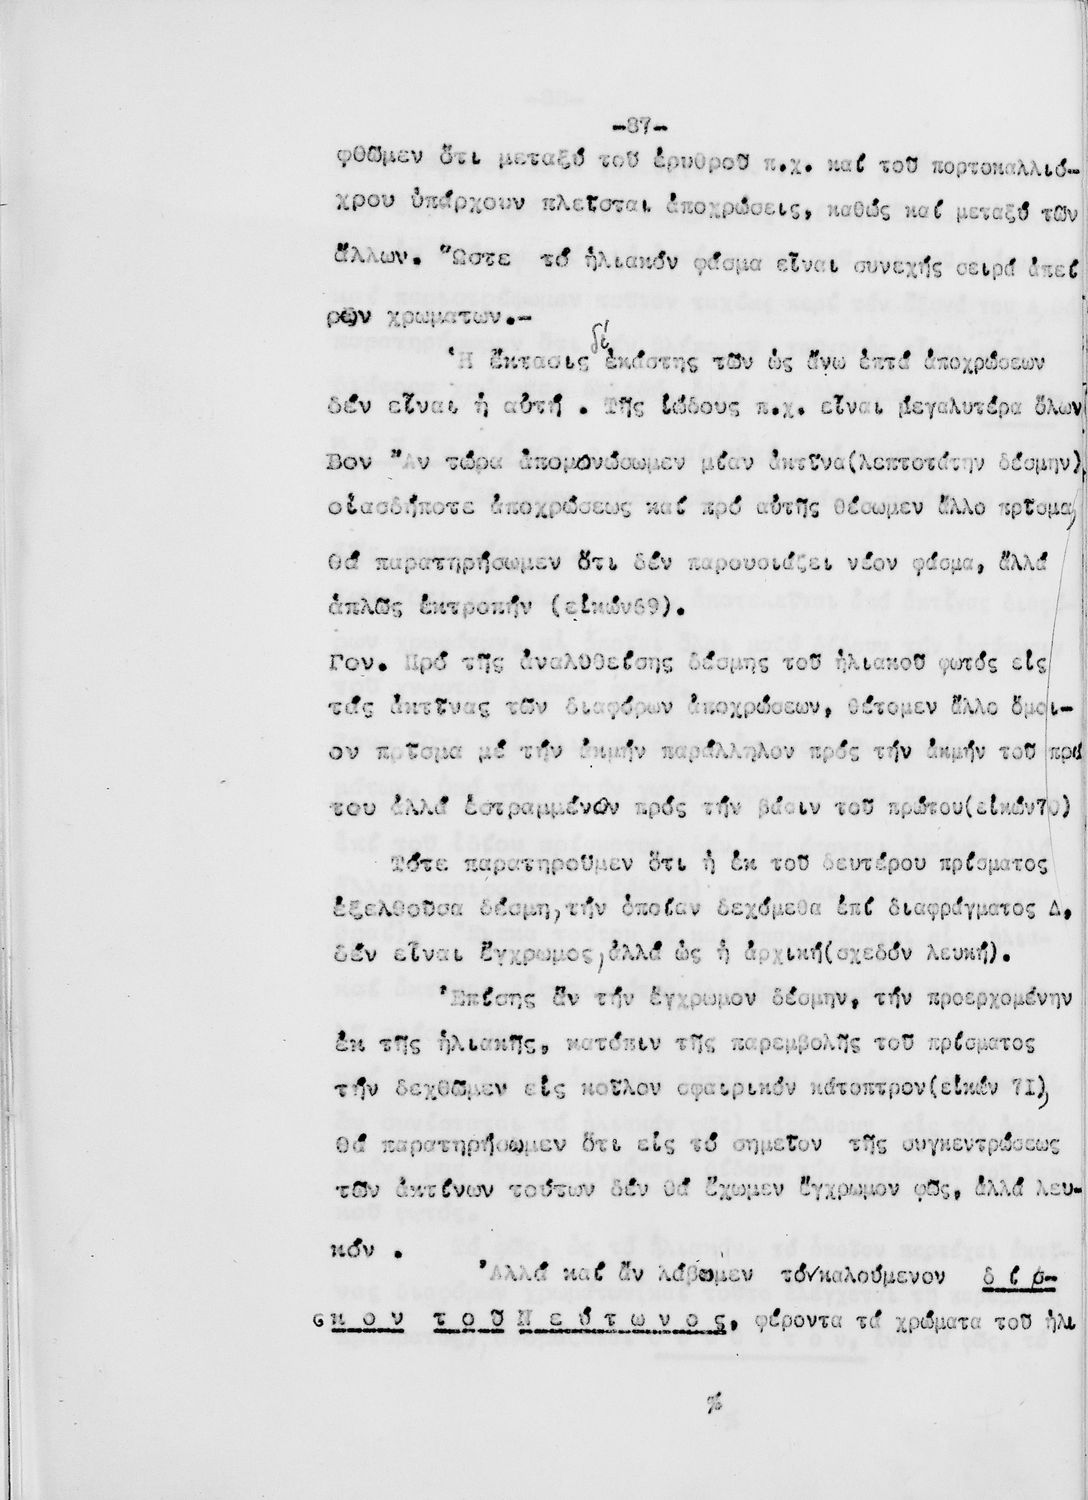 -87-
φθῶμεν ὅτι μεταξύ τοῦ ἐρυθροῦ π.χ. καί τοῦ πορτοκαλλιό-
χρου ὑπάρχουν πλεῖσται ἀποχρώσεις, καθώς καί μεταξύ τῶν
ἄλλων. Ὥστε τό ἡλιακόν φάσμα εἶναι συνεχής σειρά ἀπεί
ρων χρωμάτων.-
Ἡ ἔκτασις δέ ἑκάστης τῶν ὡς ἄνω ἑπτά ἀποχρώσεων
δέν εἶναι ἡ αὐτή . Τῆς ἰώδους π.χ. εἶναι μεγαλυτέρα ὅλων
Βον Ἄν τώρα ἀπομονώσωμεν μίαν ἀκτῖνα(λεπτοτάτην δέσμην)
οἱασδήποτε ἀποχρώσεως καί πρό αὐτῆς θέσωμεν ἄλλο πρῖσμα,
θά παρατηρήσωμεν ὅτι δέν παρουσιάζει νέον φάσμα, ἀλλά
ἁπλῶς ἐκτροπήν (εἰκών69).
Γον. Πρό τῆς ἀναλυθείσης δέσμης τοῦ ἡλιακοῦ φωτός εἰς
τάς ἀκτῖνας τῶν διαφόρων ἀποχρώσεων, θέτομεν ἄλλο ὅμοι-
ον πρῖσμα μέ τήν ἀκμήν παράλληλον πρός τήν ἀκμήν τοῦ πρώ
του ἀλλά ἐστραμμένον πρός τήν βάσιν τοῦ πρώτου(εἰκών70)
Τότε παρατηροῦμεν ὅτι ἡ ἐκ τοῦ δευτέρου πρίσματος
ἐξελθοῦσα δέσμη, τήν ὁποίαν δεχόμεθα ἐπί διαφράγματος Δ,
δέν εἶναι ἔγχρωμος, ἀλλά ὡς ἡ ἀρχική(σχεδόν λευκή).
Ἐπίσης ἄν τήν ἔγχρωμον δέσμην, τήν προερχομένην
ἐκ τῆς ἡλιακῆς, κατόπιν τῆς παρεμβολῆς τοῦ πρίσματος
τήν δεχθῶμεν εἰς κοῖλον σφαιρικόν κάτοπτρον(εἰκών 71),
θά παρατηρήσωμεν ὅτι εἰς τό σημεῖον τῆς συγκεντρώσεως
τῶν ἀκτίνων τούτων δέν θά ἔχωμεν ἔγχρωμον φῶς, ἀλλά λευ-
κόν .
Ἀλλά καί ἄν λάβωμεν τόν καλούμενον δίσ-
κον τοῦ Νεύτωνος, φέροντα τά χρώματα τοῦ ἡλι
%